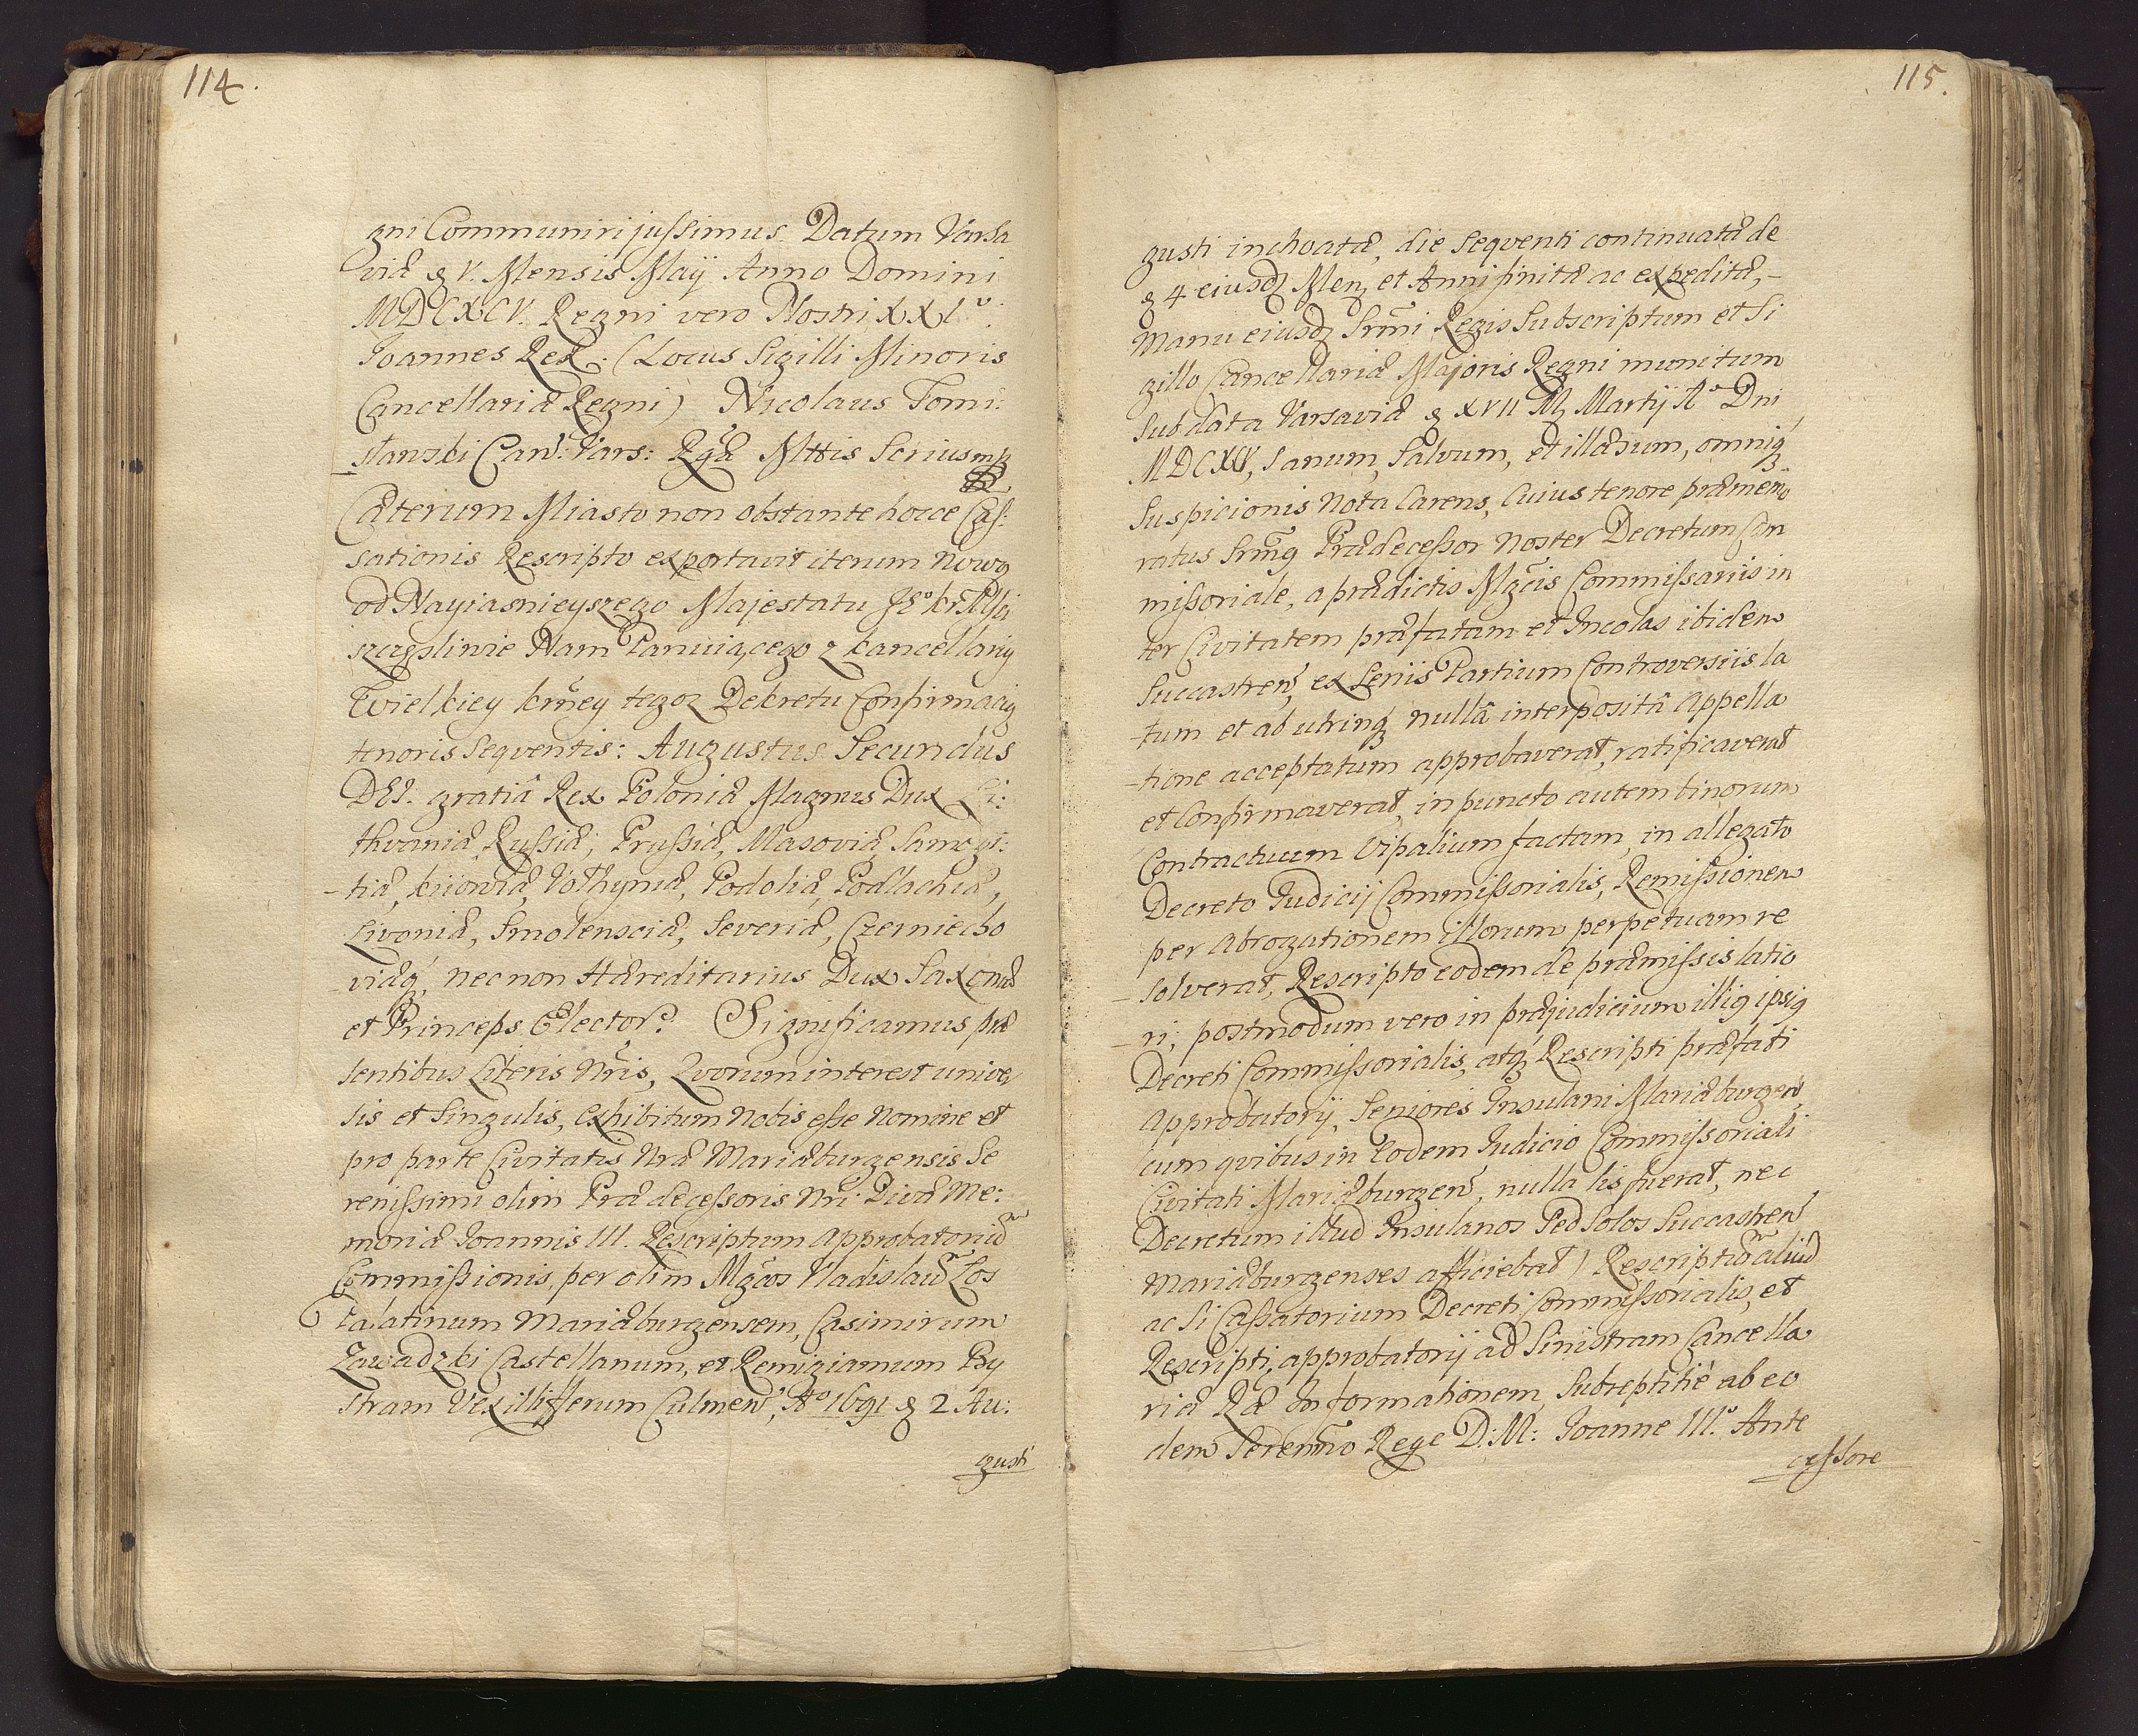 114.
gni Communiri jussimus. Datum Varsa
viæ d V. Mensis Maij Anno Domini
MDCXCV. Regni vero Nostri XXIº.
Joannes Rex. (Locus Sigilli Minoris
Cancellariæ Regni) Nicolaus Tomi:
sławski Can: Vars: Rgæ Mttis Scrius mp
Cæterum Miasto non obstante hocce Cas:
sationis Rescripto exportavit iterum nową
od Nayiasnieyszego Majestatu JEº KrMsći
szczęsliwie Nam Panuiącego z kancellaryi
Wielkiey krney tegoz Dekretu Confirmacią
tenoris Seqventis: Augustus Secundus
DEI. gratiâ Rex Poloniæ Magnus Dux Li:
thvaniæ, Russiæ, Prussiæ, Masoviæ, Samogi:
-tiæ, kijowiæ, Volhyniæ, Podoliæ, Podlachiæ,
Livoniæ, Smolensciæ, Severiæ, Czerniecho
-viæq, nec non Hæreditarius Dux Saxoniæ
et Princeps Elector. Significamus præ
sentibus Literis Nris, Qvorum interest univer
sis et Singulis, exhibitum Nobis esse Nomine et
pro parte Civitatis Nræ Mariæburgensis Se
renissimi olim Prædecessoris Nri Divæ Me:
moriæ Joannis III. Rescriptum Approbatoriũ
Commissionis, per olim Mgcos Vladislaũ Łos
Palatinum Mariæburgensem, Casimirum
Zawadzki Castellanum, et Remigianum By
stram Vexilliferum Culmen, Aº 1691 d 2 Au:
gusti
115.
gusti inchoatæ, die Seqventi continuatæ de
d 4 eiusd Men, et Anni finitæ ac expeditæ,-
Manu eiusd Srmi Regis Subscriptum et Si
gillo Cancellariæ Majoris Regni munitum
Sub data Varsaviæ d XVII M Martij Aº Dni
MDCXCV, Sanum, Salvum, et illæsum, omniq
Suspicionis Nota Carens, Cuius tenore præmemo
ratus Srmq Prædecessor Noster Decretum Com
missoriale, a prædictis Mgcis Commissariis in
ter Civitatem præfatam et Incolas ibidem
Succastren, ex Seriis Partium Controversiis la
-tum et ab utrinq nullâ interpositâ Appella
-tione acceptatum approbaverat, ratificaverat
et Confirmaverat, in puncto autem binorum
Contractuum Vipalium factam, in allegato
Decreto Judicij Commissorialis, Remissionem
per Abrogationem illorum perpetuam re
-solverat, Rescripto eodem de præmissis latio
-ri; postmodum vero in præjudicium illiq ipsiq
Decreti Commissorialis, atq Rescripti præfati
Approbatorij, Seniores Insulani Mariæburgen
cum qvibus in Eodem Judicio Commissoriali
Civitati Mariæburgen, nulla lis fuerat, nec
Decretum illud Insulanos Sed Solos Succastren
Mariæburgenses afficiebat) Rescriptũ aliud
ac Si Cassatorium Decreti Commissorialis, et
Rescripti, approbatorij ad Sinistram Cancella
riæ Ræ Informationem, Subreptitiè ab eo
dem Serenmo Rege D: M: Joanne III.º Ante
cessore